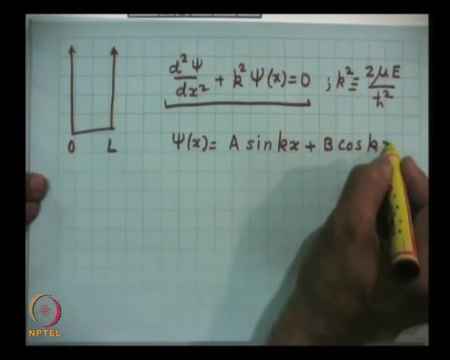 d²Ψ/dx² + k² Ψ(x) = 0 ; k² = 2μE/ħ²
0 L
Ψ(x) = A sin kx + B cos k
NPTEL